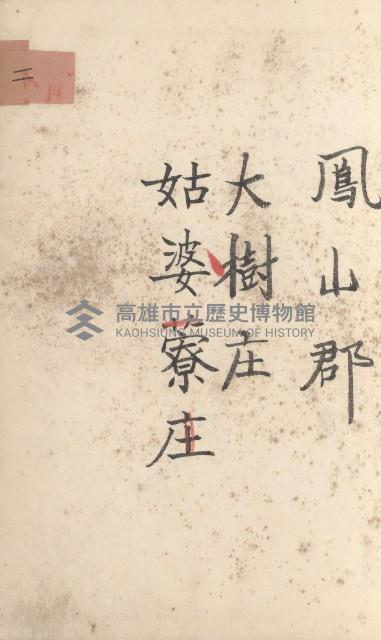 鳳山郡
大樹庄
姑婆寮庄
二
高雄市立歷史博物館
KAOHSIUNG MUSEUM OF HISTORY